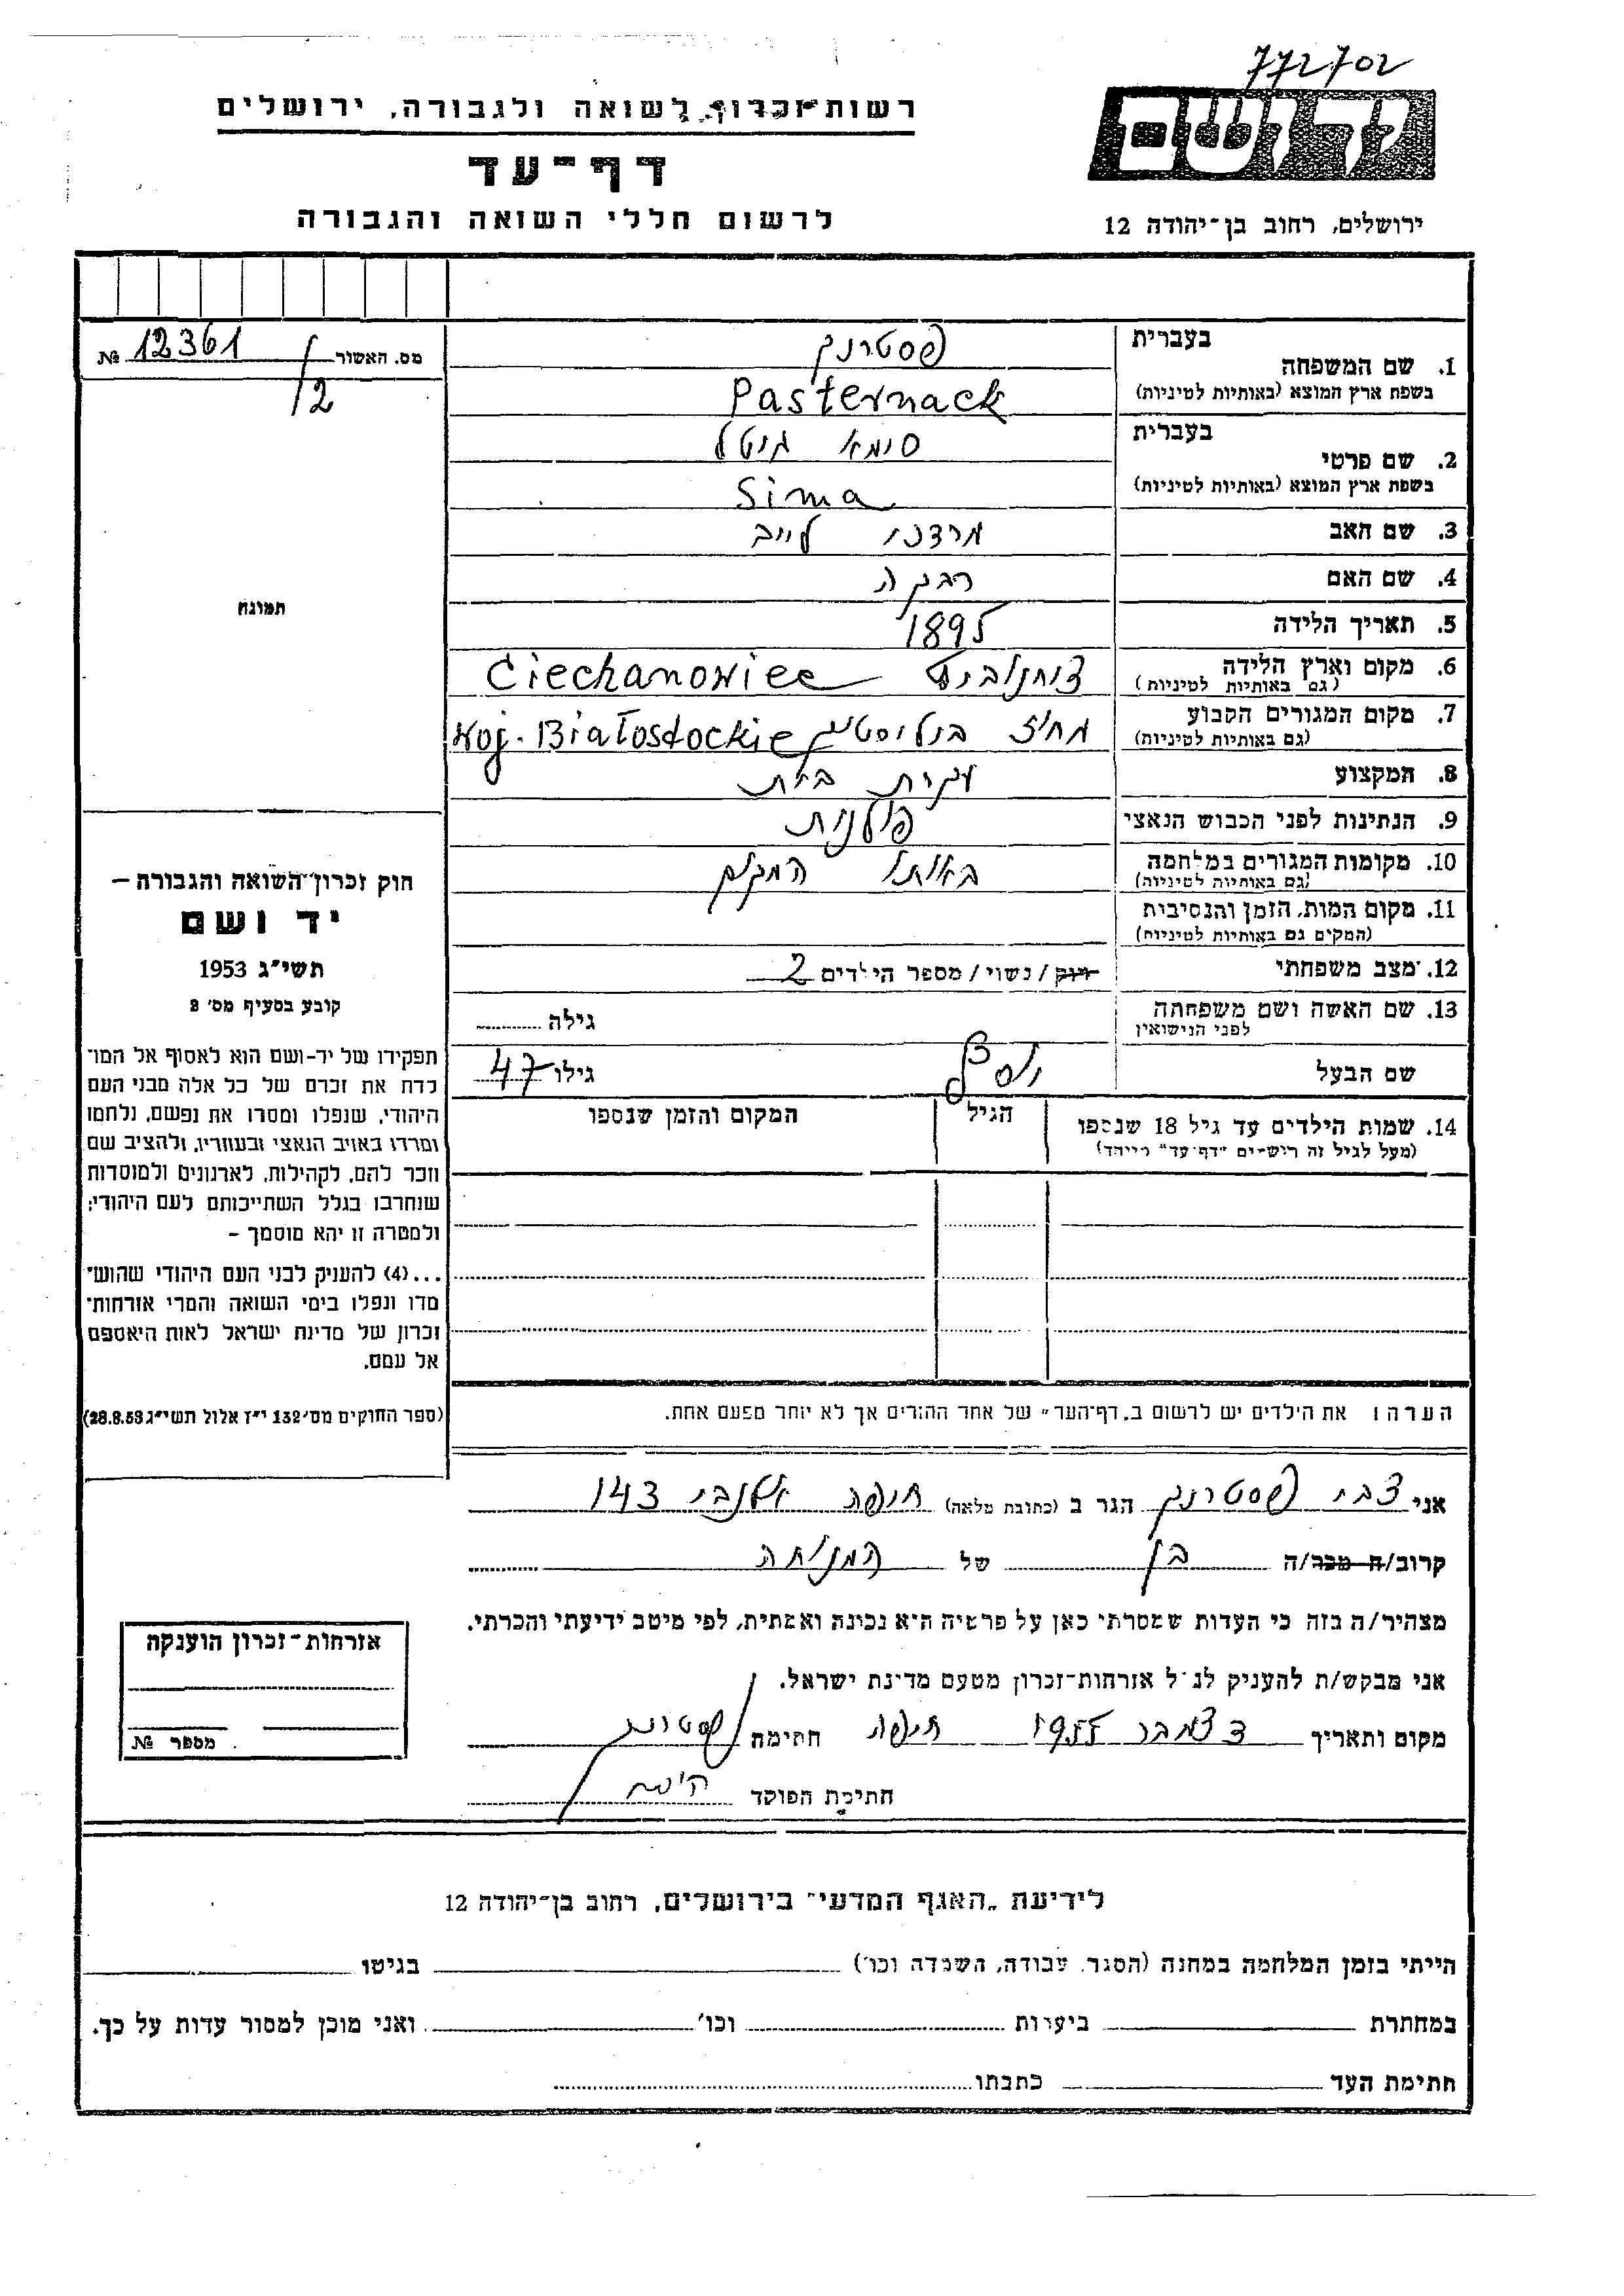 772702
יד ושם
רשות זכרון לשואה ולגבורה, ירושלים
דף-עד
לרשום חללי השואה והגבורה
ירושלים, רחוב בן-יהודה 12
מס. האשור 12361 №
/2
בעברית
1. שם המשפחה פסטרנק
בשפת ארץ המוצא (באותיות לטיניות) Pasternack
בעברית סימא גיטל
2. שם פרטי
בשפת ארץ המוצא (באותיות לטיניות) Sima
3. שם האב מרדכי לייב
4. שם האם רבקה
5. תאריך הלידה 1895
6. מקום וארץ הלידה Ciechanowiec
(גם באותיות לטיניות)
7. מקום המגורים הקבוע מחוז ביליסטוק Woj. Białostockie
(גם באותיות לטיניות)
8. המקצוע עקרת בית
9. הנתינות לפני הכבוש הנאצי פולנית
10. מקומות המגורים במלחמה באותו המקום
(גם באותיות לטיניות)
11. מקום המות, הזמן והנסיבות
(המקום גם באותיות לטיניות)
12. מצב משפחתי רווק / נשוי / מספר הילדים 2
13. שם האשה ושם משפחתה גילה
לפני הנישואין
שם הבעל יוסף גילו 47
14. שמות הילדים עד גיל 18 שנספו הגיל המקום והזמן שנספו
(מעל לגיל זה רושמים "דף-עד" מיוחד)
תמונה
חוק זכרון השואה והגבורה –
יד ושם
תשי"ג 1953
קובע בסעיף מס' 2
תפקידו של יד-ושם הוא לאסוף אל המו־
לדת את זכרם של כל אלה מבני העם
היהודי, שנפלו ומסרו את נפשם, נלחמו
ומרדו באויב הנאצי ובעוזריו, ולהציב שם
וזכר להם, לקהילות, לארגונים ולמוסדות
שנחרבו בגלל השתייכותם לעם היהודי;
ולמטרה זו יהא מוסמך –
...(4) להעניק לבני העם היהודי שהוש־
מדו ונפלו בימי השואה והמרי אזרחות־
זכרון של מדינת ישראל לאות היאספם
אל עמם.
(ספר החוקים מס' 132 י"ז אלול תשי"ג 28.8.53)
הערה: את הילדים יש לרשום ב"דף-העד" של אחד ההורים אך לא יותר מפעם אחת.
אני צבי פסטרנק הגר ב (כתובת מלאה) חיפה אלנבי 143
קרוב/ה מכר/ה בן של המנוחה
מצהיר/ה בזה כי העדות שמסרתי כאן על פרטיה היא נכונה ואמתית, לפי מיטב ידיעתי והכרתי.
אני מבקש/ת להעניק לנ"ל אזרחות-זכרון מטעם מדינת ישראל.
מקום ותאריך דצמבר 1955 חיפה חתימה פסטרנק
חתימת הפוקד
אזרחות-זכרון הוענקה
מספר №
לידיעת "האגף המדעי" בירושלים, רחוב בן-יהודה 12
הייתי בזמן המלחמה במחנה (הסגר, עבודה, השמדה וכו') בגיטו
במחתרת ביערות וכו' ואני מוכן למסור עדות על כך.
חתימת העד כתבתו